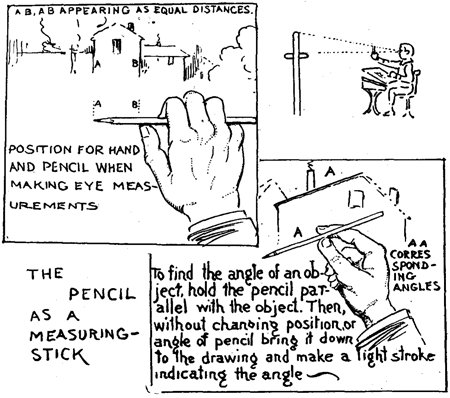 AB, AB APPEARING AS EQUAL DISTANCES.
A B
A B
POSITION FOR HAND
AND PENCIL WHEN
MAKING EYE MEAS-
UREMENTS
A
A
AA
CORRES
POND-
ING
ANGLES
THE
PENCIL
AS A
MEASURING-
STICK
To find the angle of an ob-
ject, hold the pencil par-
allel with the object. Then,
without changing position, or
angle of pencil bring it down
to the drawing and make a light stroke
indicating the angle